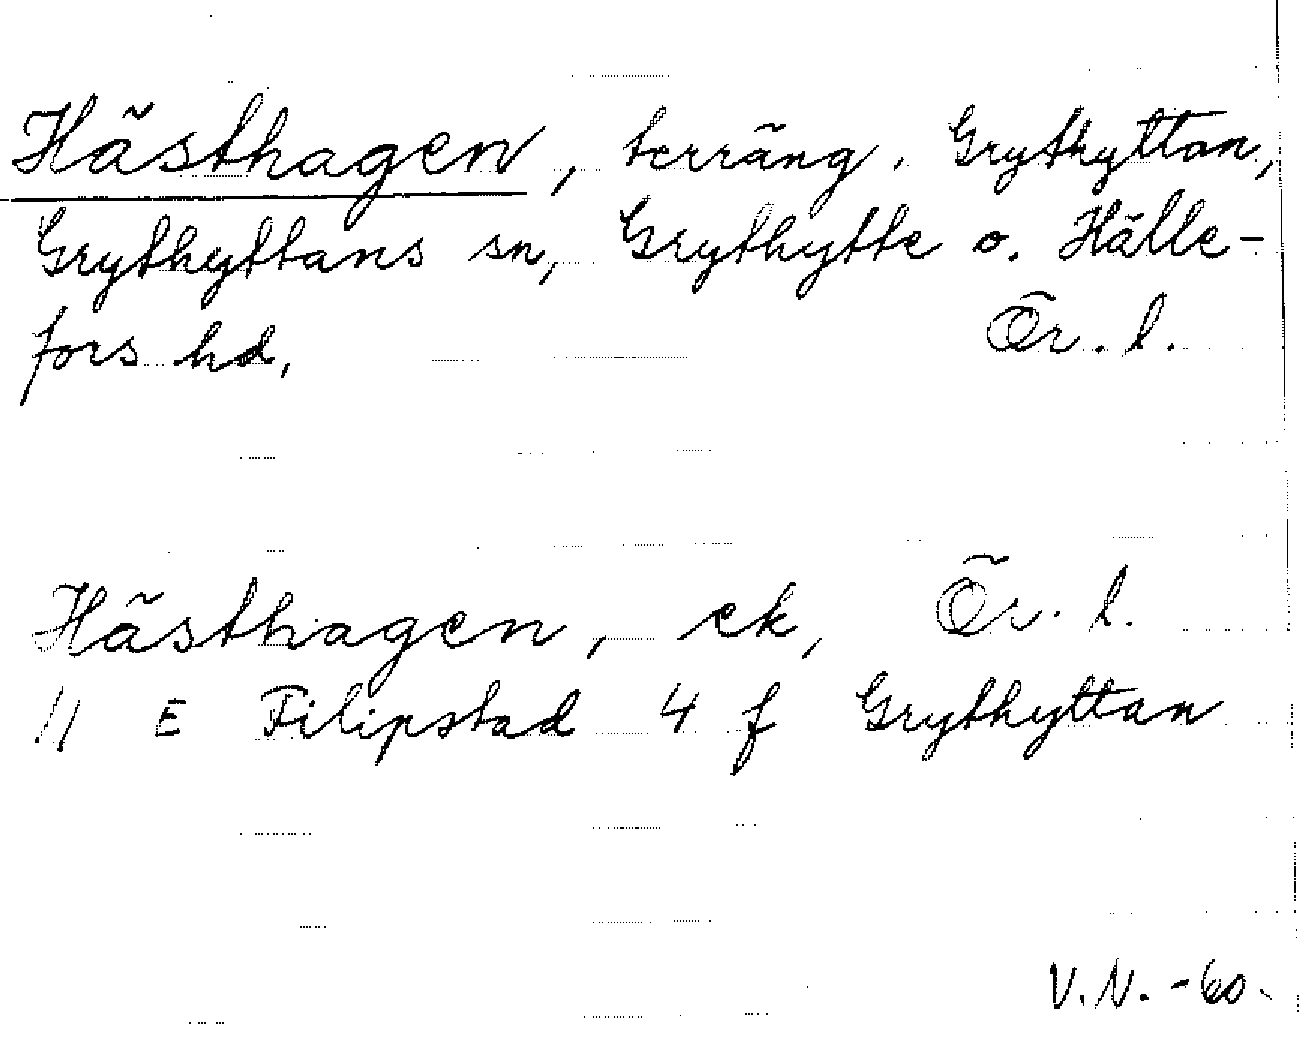 Hästhagen, terräng. Grythyttan,
Grythyttans sn, Grythytte o. Hälle-
fors hd, Ör. l.
Hästhagen, ek, Ör. l.
11 E Filipstad 4 f Grythyttan
V.N. -60.